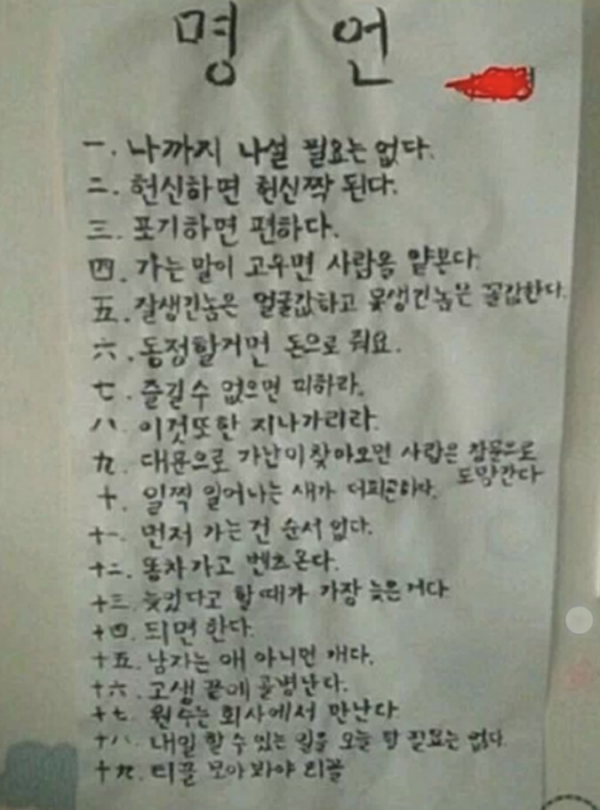 명 언
一. 나까지 나설 필요는 없다.
二. 헌신하면 헌신짝 된다.
三. 포기하면 편하다.
四. 가는 말이 고우면 사람을 얕본다.
五. 잘생긴놈은 얼굴값하고 못생긴놈은 꼴값한다.
六. 동정할거면 돈으로 줘요.
七. 즐길수 없으면 피하라.
八. 이것또한 지나가리라.
九. 대문으로 가난이찾아오면 사람은 창문으로
도망간다
十. 일찍 일어나는 새가 더피곤하다.
十一. 먼저 가는건 순서 없다.
十二. 똥차가고 벤츠온다.
十三. 늦었다고 할때가 가장 늦은거다
十四. 되면 한다.
十五. 남자는 애 아니면 개다.
十六. 고생 끝에 골병난다.
十七. 원수는 회사에서 만난다
十八. 내일 할 수 있는 일을 오늘 할 필요는 없다.
十九. 티끌 모아봐야 티끌